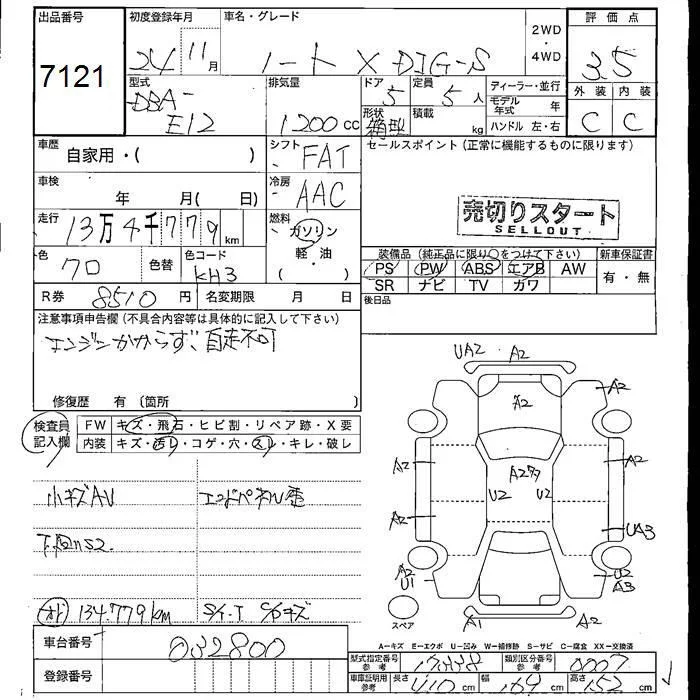 出品番号
7121
初度登録年月
24 11月
車名・グレード
ノート X DIG-S
2WD
・
4WD
評価点
3.5
外装 内装
C C
型式
DBA-
E12
排気量
1200cc
ドア 5
定員 5人
形状 箱型
積載 kg
ディーラー・並行
モデル年式 年
ハンドル 左・右
車歴
自家用・( )
シフト FAT
セールスポイント(正常に機能するものに限ります)
車検
年 月( 日)
冷房 AAC
売切りスタート
SELLOUT
走行
13万4千779km
燃料
ガソリン
軽・油
( )
色
クロ
色替
色コード
KH3
装備品(純正品に限り○をつけて下さい)
新車保証書
PS PW ABS エアB AW
有・無
SR ナビ TV カワ
R券 8510円
名変期限 月 日
後日品
注意事項申告欄(不具合内容等は具体的に記入して下さい)
エンジンかからず、自走不可
修復歴 有(箇所 )
検査員記入欄
FW キズ・飛石・ヒビ割・リペア跡・X要
内装 キズ・汚レ・コゲ・穴・スレ・キレ・破レ
小キズAU
下廻りS2
134.779km
車台番号
032800
登録番号
UA2 A2
A2
A2
A2
A2
A2
U2
U2
A2
UA3
A2
U1
U2
A3
スペア
A1
A2
A-キズ E-エクボ U-凹み W-補修跡 S-サビ C-腐食 XX-交換済
型式指定番号
参考
類別区分番号
参考
0007
車庫証明用
参考
長さ 410cm
幅 169cm
高さ 152cm